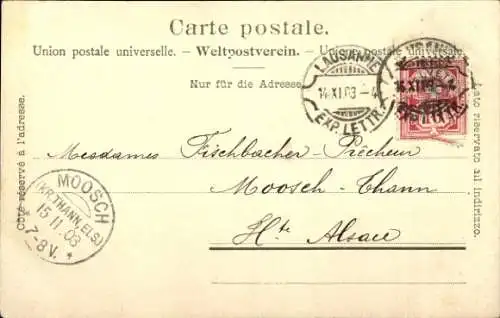 Carte postale.
Union postale universelle. – Weltpostverein. – Unione postale universale.
Nur für die Adresse.
Côté réservé à l'adresse.
Lato riservato all indirizzo.
LAUSANNE
14.XI.03 – 4
EXP. LETTR.
LAUSANNE
14.XI.03 – 4
EXP. LETTR.
Mesdames Fischbacher-Prêcheur
Moosch-Thann
Hte Alsace
MOOSCH
(KR. THANN, ELS.)
15.11.03
7-8V.